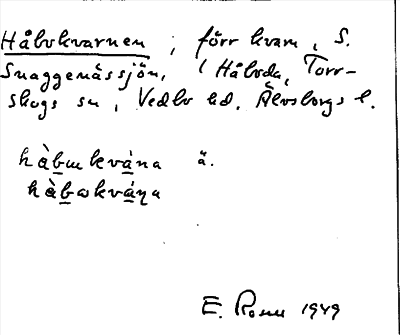 Hålvkvarnen, förr kvarn, S.
Snaggenässjön, (Hålvda, Torr-
skogs sn, Vedbo hd. Älvsborgs l.
hàbɯkvána ä.
hàbωkvána
E. 1949